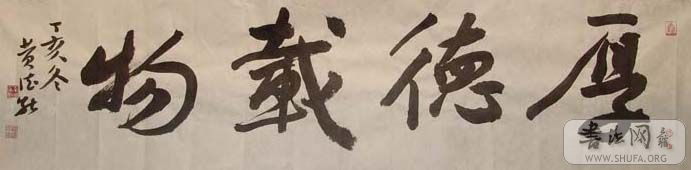 厚德載物
丁亥冬
黄德能
书法网
WWW.SHUFA.ORG